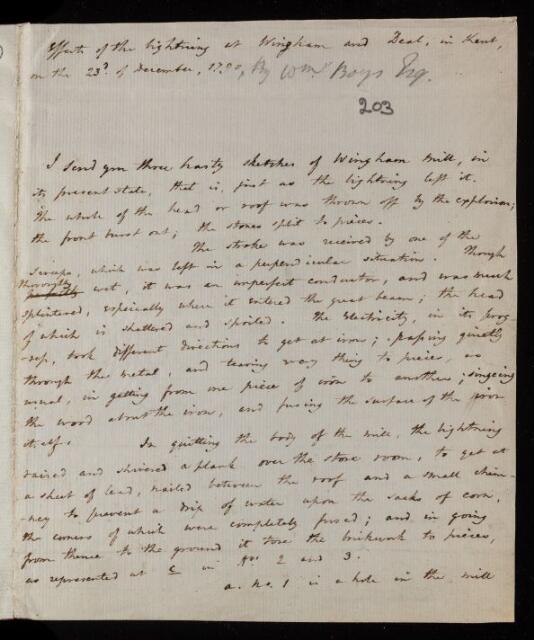 Effects of the lightning at Wingham and Deal, in Kent,
on the 23d. of December, 1790, By Wm. Boys Esq.
203
I send you three hasty sketches of Wingham mill, in
its present state, that is, just as the lightning left it.
The whole of the head or roof was thrown off by the explosion;
the front burst out; the stones split to pieces.
The stroke was received by one of the
sweeps, which was left in a perpendicular situation. Though
thoroughly
wet, it was an imperfect conductor, and was much
splintered, especially where it entered the great beam; the head
of which is shattered and spoiled. The Electricity, in its prog
-ress, took different directions to get at iron; passing quietly
through the metal, and tearing every thing to pieces, as
usual, in getting from one piece of iron to another; singeing
the wood about the iron, and fusing the surface of the iron
itself.
In quitting the body of the mill, the lightning
raised and shivered a plank over the store room, to get at
a sheet of lead, nailed between the roof and a small chim-
-ney to prevent a drip of water upon the sacks of corn,
the corners of which were completely fused; and in going
from thence to the ground it tore the brickwork to pieces,
as represented at c in Nos 2 and 3.
a. No. 1 is a hole in the mill